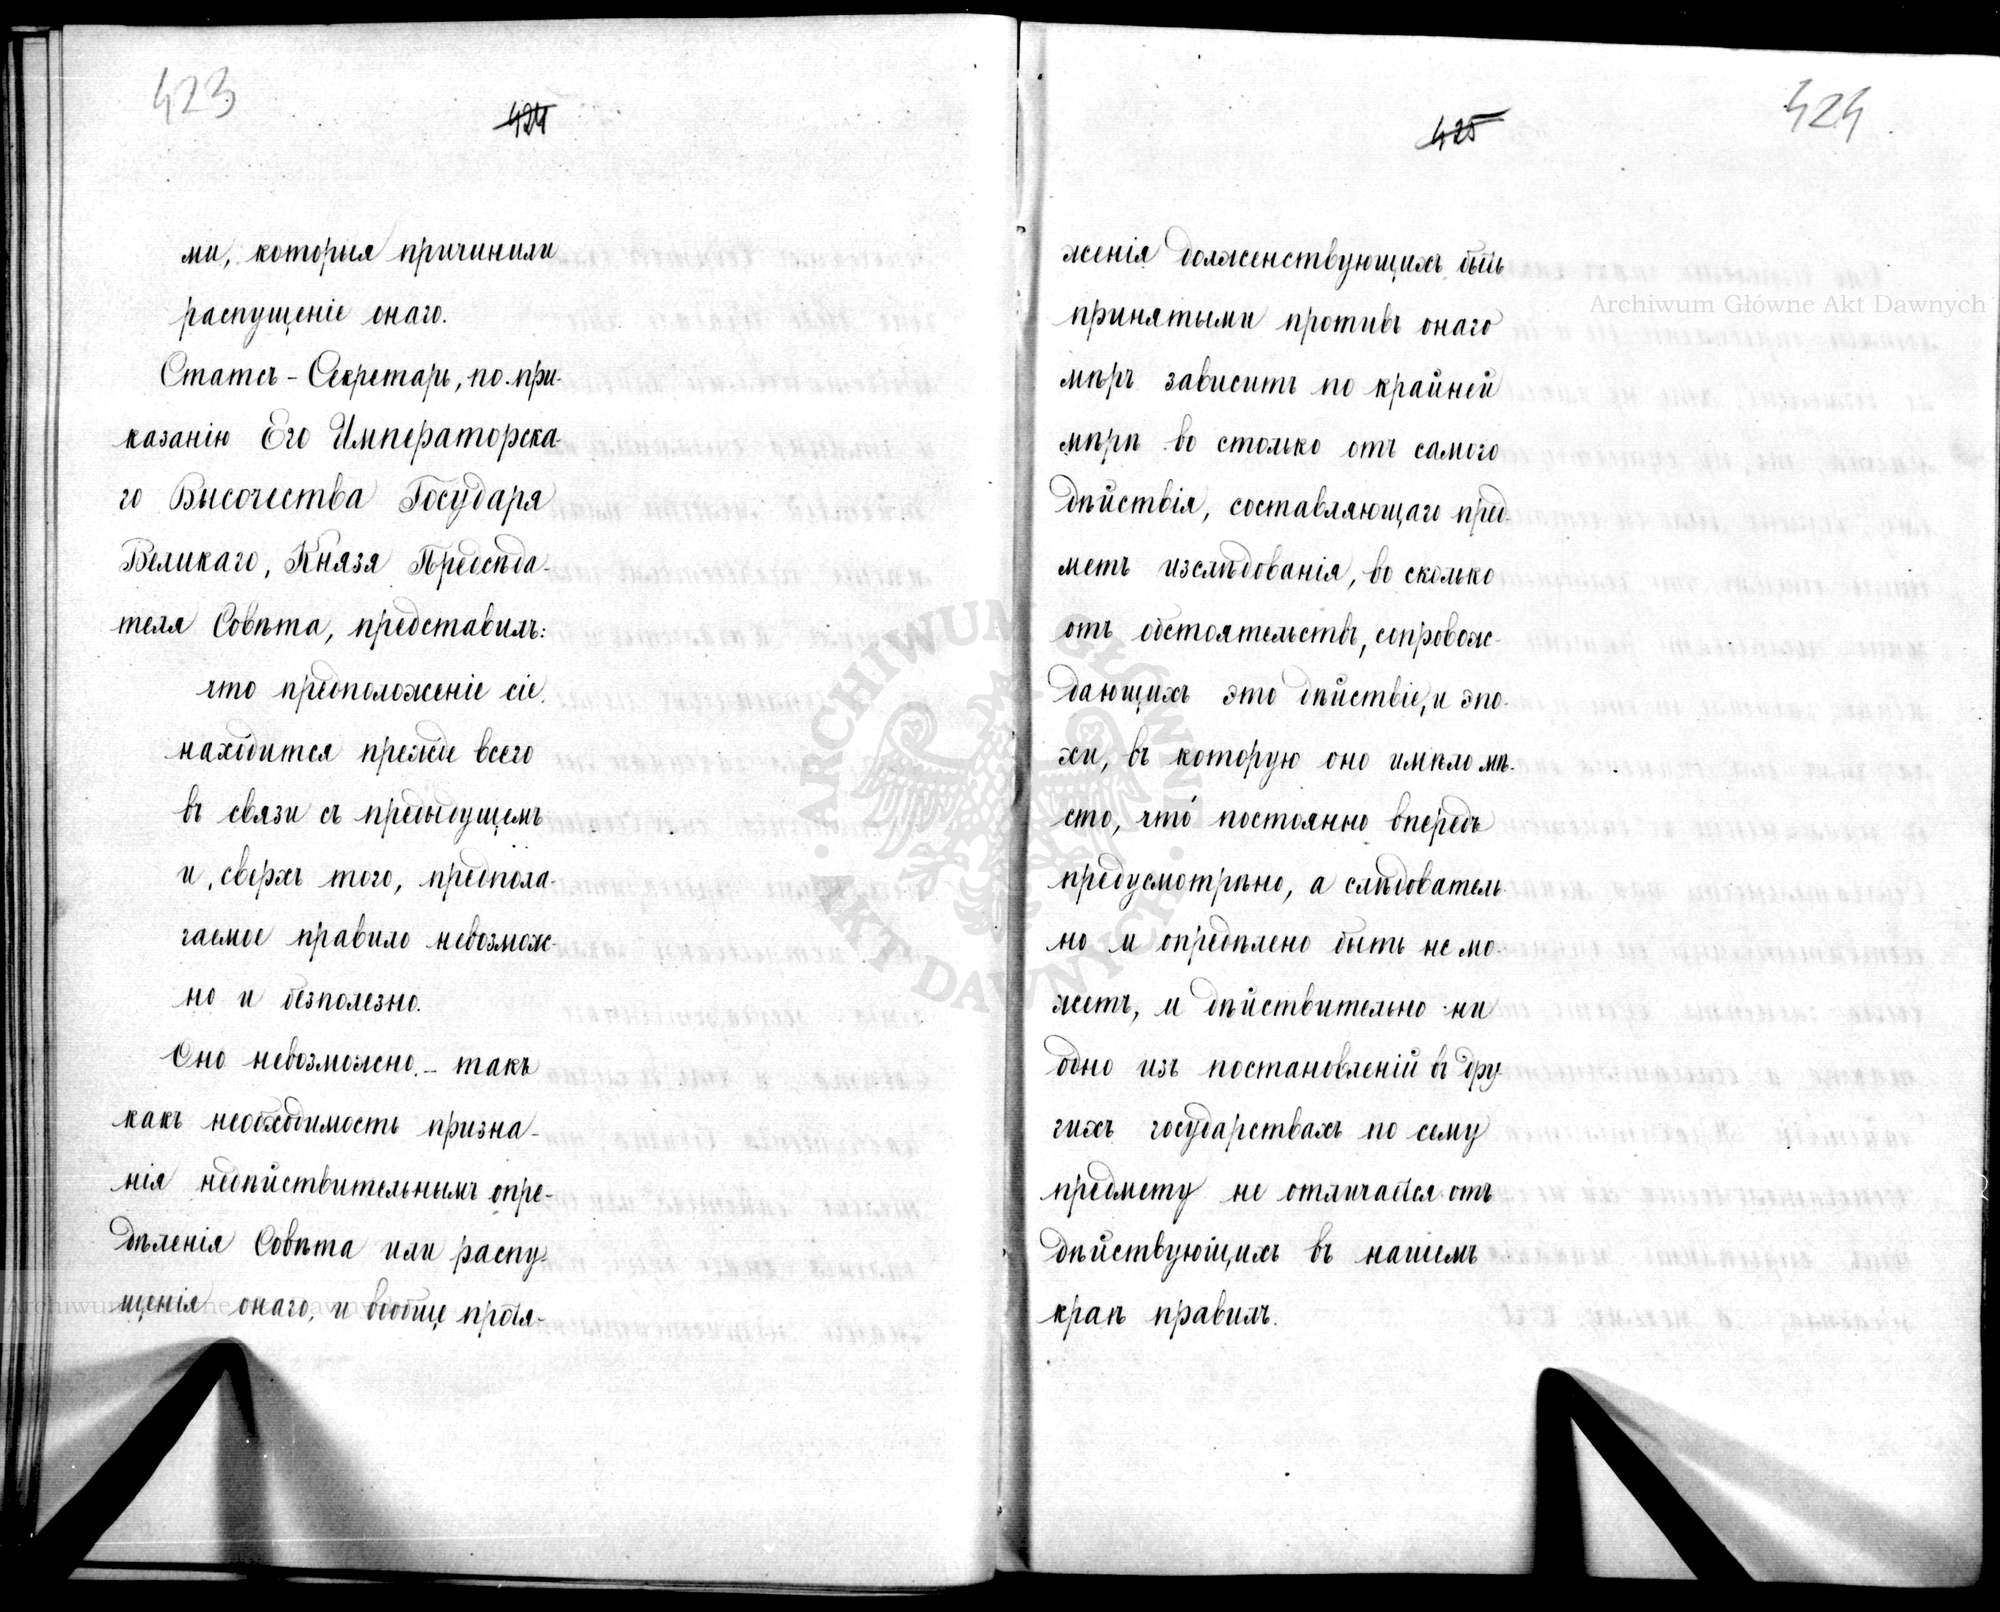 423
424
ми, которыя причинили
распущеніе онаго.
Статсъ-Секретарь, по при-
казанію Его Императорска
го Высочества Государя
Великаго, Князя Предсѣда-
теля Совѣта, представилъ:
что предположеніе сіе
находится прежде всего
въ связи съ предыдущемъ
и, сверхъ того, предпола-
гаемое правило невозмож-
но и безполезно.
Оно невозможно, - такъ
какъ необходимость призна-
нія недѣйствительнымъ опре-
дѣленія Совѣта или распу-
щенія онаго, и вообще протя-
425
424
женія долженствующихъ быть
принятыми противъ онаго
мѣръ зависитъ по крайней
мѣрѣ во столько отъ самого
дѣйствія, составляющаго пред-
метъ изслѣдованія, во сколько
отъ обстоятельствъ, сопровож-
дающихъ это дѣйствіе, и эпо-
хи, въ которую оно имѣло мѣ-
сто, что постоянно впередъ
предусмотрѣно, а слѣдователь-
но и опредѣлено быть не мо-
жетъ, и дѣйствительно ни
одно изъ постановленій въ дру-
гихъ государствахъ по сему
предмету не отличается отъ
дѣйствующихъ въ нашемъ
краѣ правилъ.
Archiwum Główne Akt Dawnych
ARCHIWUM GŁÓWNE AKT DAWNYCH
Archiwum Główne Akt Dawnych